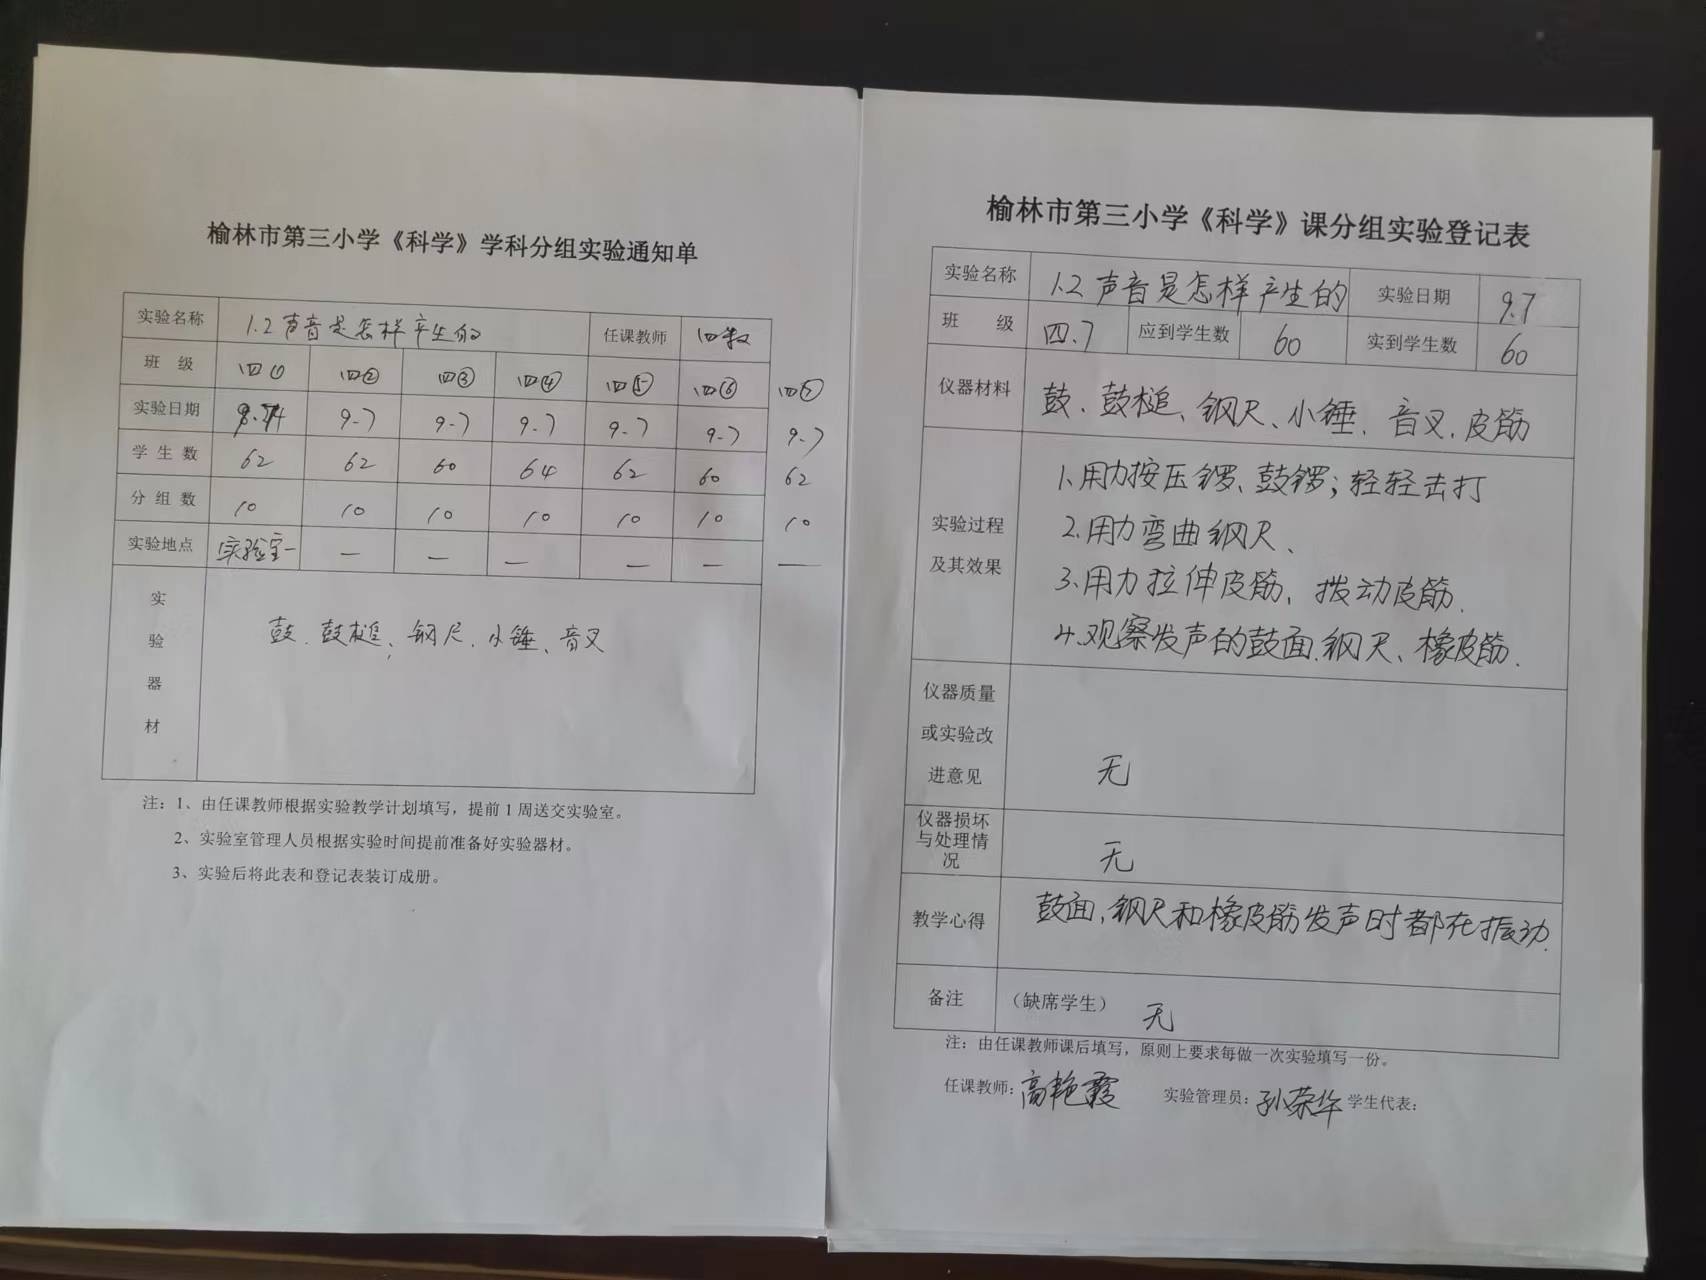 榆林市第三小学《科学》学科分组实验通知单
实验名称 1.2 声音是怎样产生的 任课教师
班 级 四① 四② 四③ 四④ 四⑤ 四⑥ 四⑦
实验日期 9.7 9.7 9.7 9.7 9.7 9.7
学 生 数 62 62 60 64 62 60 62
分 组 数 10 10 10 10 10 10 10
实验地点 实验室一 一 一 一 一 一 一
实验器材 鼓、鼓槌、钢尺、小锤、音叉
注：1、由任课教师根据实验教学计划填写，提前1周送交实验室。
2、实验室管理人员根据实验时间提前准备好实验器材。
3、实验后将此表和登记表装订成册。
榆林市第三小学《科学》课分组实验登记表
实验名称 1.2 声音是怎样产生的 实验日期 9.7
班 级 四.7 应到学生数 60 实到学生数 60
仪器材料 鼓、鼓槌、钢尺、小锤、音叉、皮筋
实验过程及其效果
1.用力按压锣、鼓锣；轻轻击打
2.用力弯曲钢尺、
3.用力拉伸皮筋、拨动皮筋.
4.观察发声的鼓面.钢尺、橡皮筋.
仪器质量或实验改进意见 无
仪器损坏与处理情况 无
教学心得 鼓面、钢尺和橡皮筋发声时都在振动.
备注 （缺席学生） 无
注：由任课教师课后填写，原则上要求每做一次实验填写一份。
任课教师：高艳霞 实验管理员：孙荣华 学生代表：